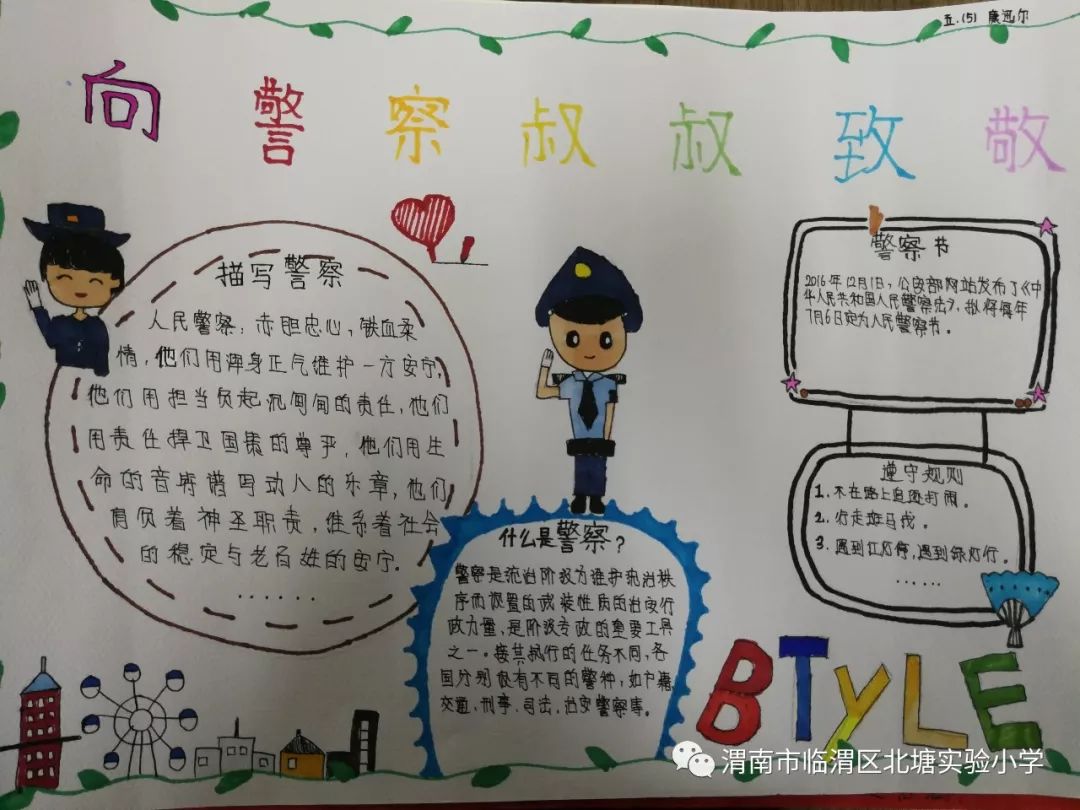 五.(5) 康迅尔
向警察叔叔致敬
描写警察
人民警察：赤胆忠心，铁血柔
情，他们用浑身正气维护一方安宁，
他们用担当负起沉甸甸的责任，他们
用责任捍卫国策的尊乎，他们用生
命的音符谱写动人的乐章，他们
肩负着神圣职责，维系着社会
的稳定与老百姓的安宁.
......
什么是警察？
警察是统治阶级为维护统治秩
序而设置的武装性质的治安行
政力量，是阶级专政的重要工具
之一。按其执行的任务不同，各
国分别设有不同的警种，如户籍
交通、刑事、司法、治安警察等。
警察节
2016年12月1日，公安部网站发布了《中
华人民共和国人民警察法》，拟将每年
7月6日定为人民警察节。
遵守规则
1.不在路上追逐打闹。
2.行走斑马线。
3.遇到红灯停，遇到绿灯行。
......
BTYLE
渭南市临渭区北塘实验小学